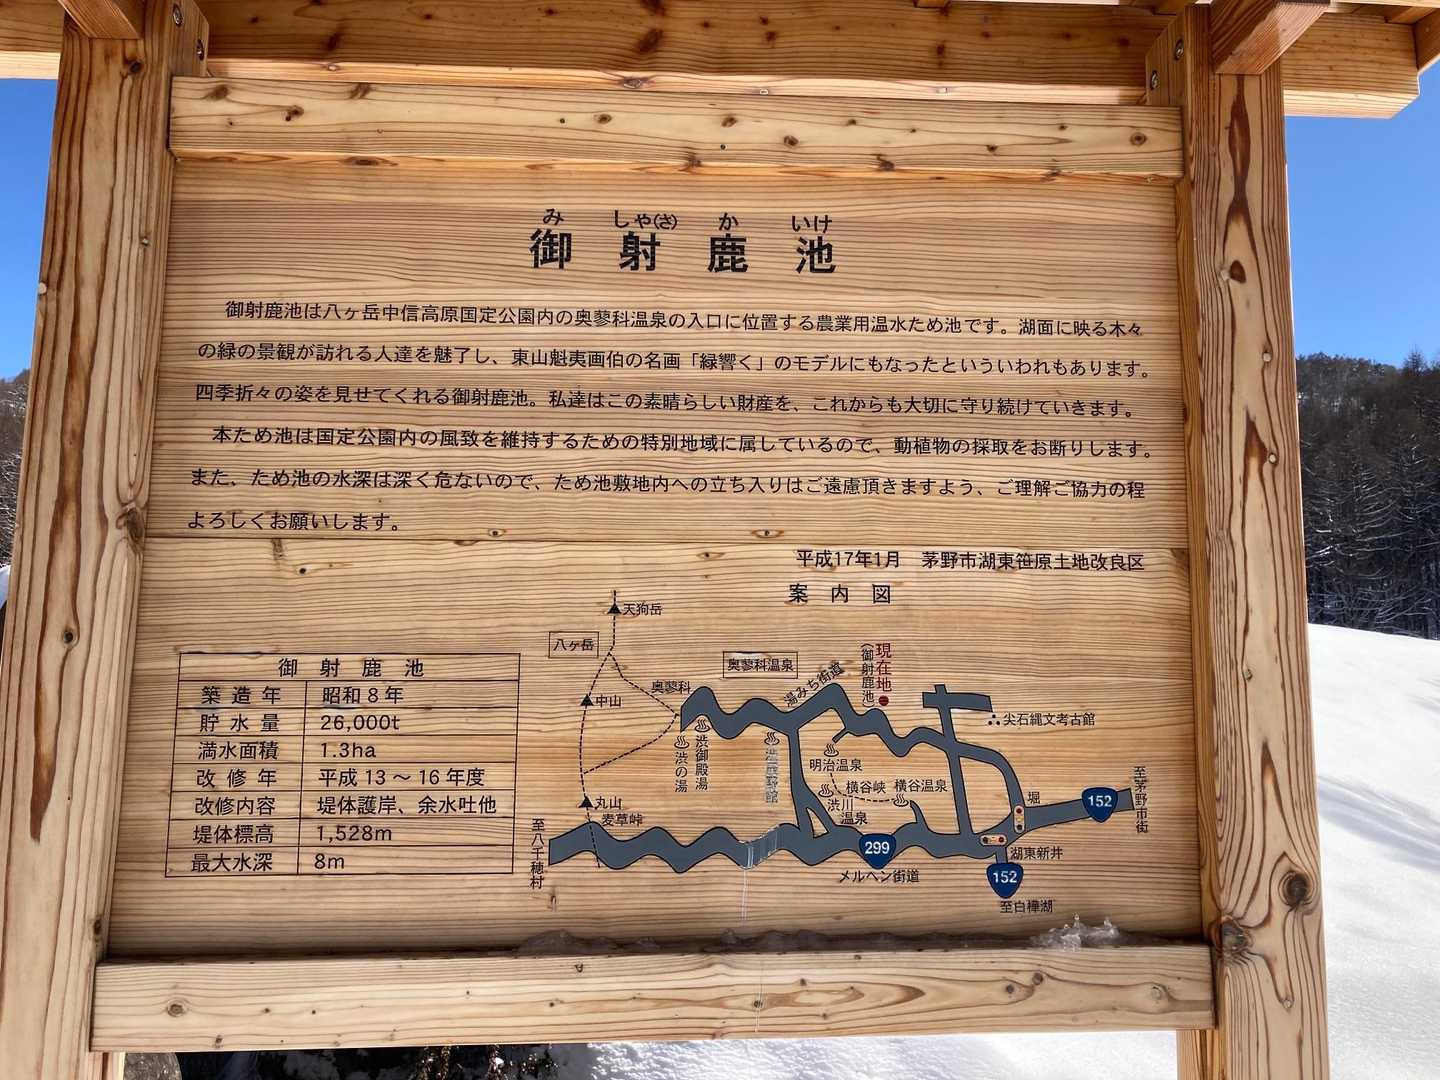 み しゃ(さ) か いけ
御射鹿池
御射鹿池は八ヶ岳中信高原国定公園内の奥蓼科温泉の入口に位置する農業用温水ため池です。湖面に映る木々
の緑の景観が訪れる人達を魅了し、東山魁夷画伯の名画「緑響く」のモデルにもなったといういわれもあります。
四季折々の姿を見せてくれる御射鹿池。私達はこの素晴らしい財産を、これからも大切に守り続けていきます。
本ため池は国定公園内の風致を維持するための特別地域に属しているので、動植物の採取をお断りします。
また、ため池の水深は深く危ないので、ため池敷地内への立ち入りはご遠慮頂きますよう、ご理解ご協力の程
よろしくお願いします。
平成17年1月 茅野市湖東笹原土地改良区
案内図
御射鹿池
築造年 昭和8年
貯水量 26,000t
満水面積 1.3ha
改修年 平成13～16年度
改修内容 堤体護岸、余水吐他
堤体標高 1,528m
最大水深 8m
天狗岳
八ヶ岳
中山
丸山
麦草峠
至八千穂村
奥蓼科
奥蓼科温泉
湯みち街道
現在地
(御射鹿池)
尖石縄文考古館
渋の湯
渋御殿湯
明治温泉
横谷峡
横谷温泉
渋川
温泉
堀
152
至茅野市街
299
メルヘン街道
湖東新井
152
至白樺湖